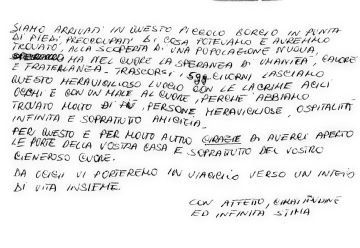 SIAMO ARRIVATI IN QUESTO PICCOLO BORGO IN PUNTA
DI PIEDI, PREOCCUPATI DI COSA POTEVAMO E AVREMMO
TROVATO, ALLA SCOPERTA DI UNA POPOLAZIONE NUOVA,
MA NEL CUORE LA SPERANZA DI UMANITA', CALORE
E FRATELLANZA. TRASCORSI I 5 GIORNI LASCIAMO
QUESTO MERAVIGLIOSO LUOGO CON LE LACRIME AGLI
OCCHI E CON UN MALE AL CUORE, PERCHE' ABBIAMO
TROVATO MOLTO DI PIÙ, PERSONE MERAVIGLIOSE, OSPITALITÀ
INFINITA E SOPRATUTTO AMICIZIA.
PER QUESTO E PER MOLTO ALTRO GRAZIE DI AVERCI APERTO
LE PORTE DELLA VOSTRA CASA E SOPRATUTTO DEL VOSTRO
GENEROSO CUORE.
DA OGGI VI PORTEREMO IN VIAGGIO VERSO UN INIZIO
DI VITA INSIEME.
CON AFFETTO, GRATITUDINE
ED INFINITA STIMA